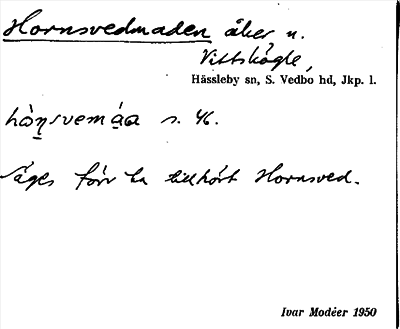 Hornsvedmaden åker u.
Vittskögle,
Hässleby sn, S. Vedbo hd, Jkp. l.
hòṇsvemá̤a s. 46.
Säges förr ha tillhört Hornsved.
Ivar Modéer 1950